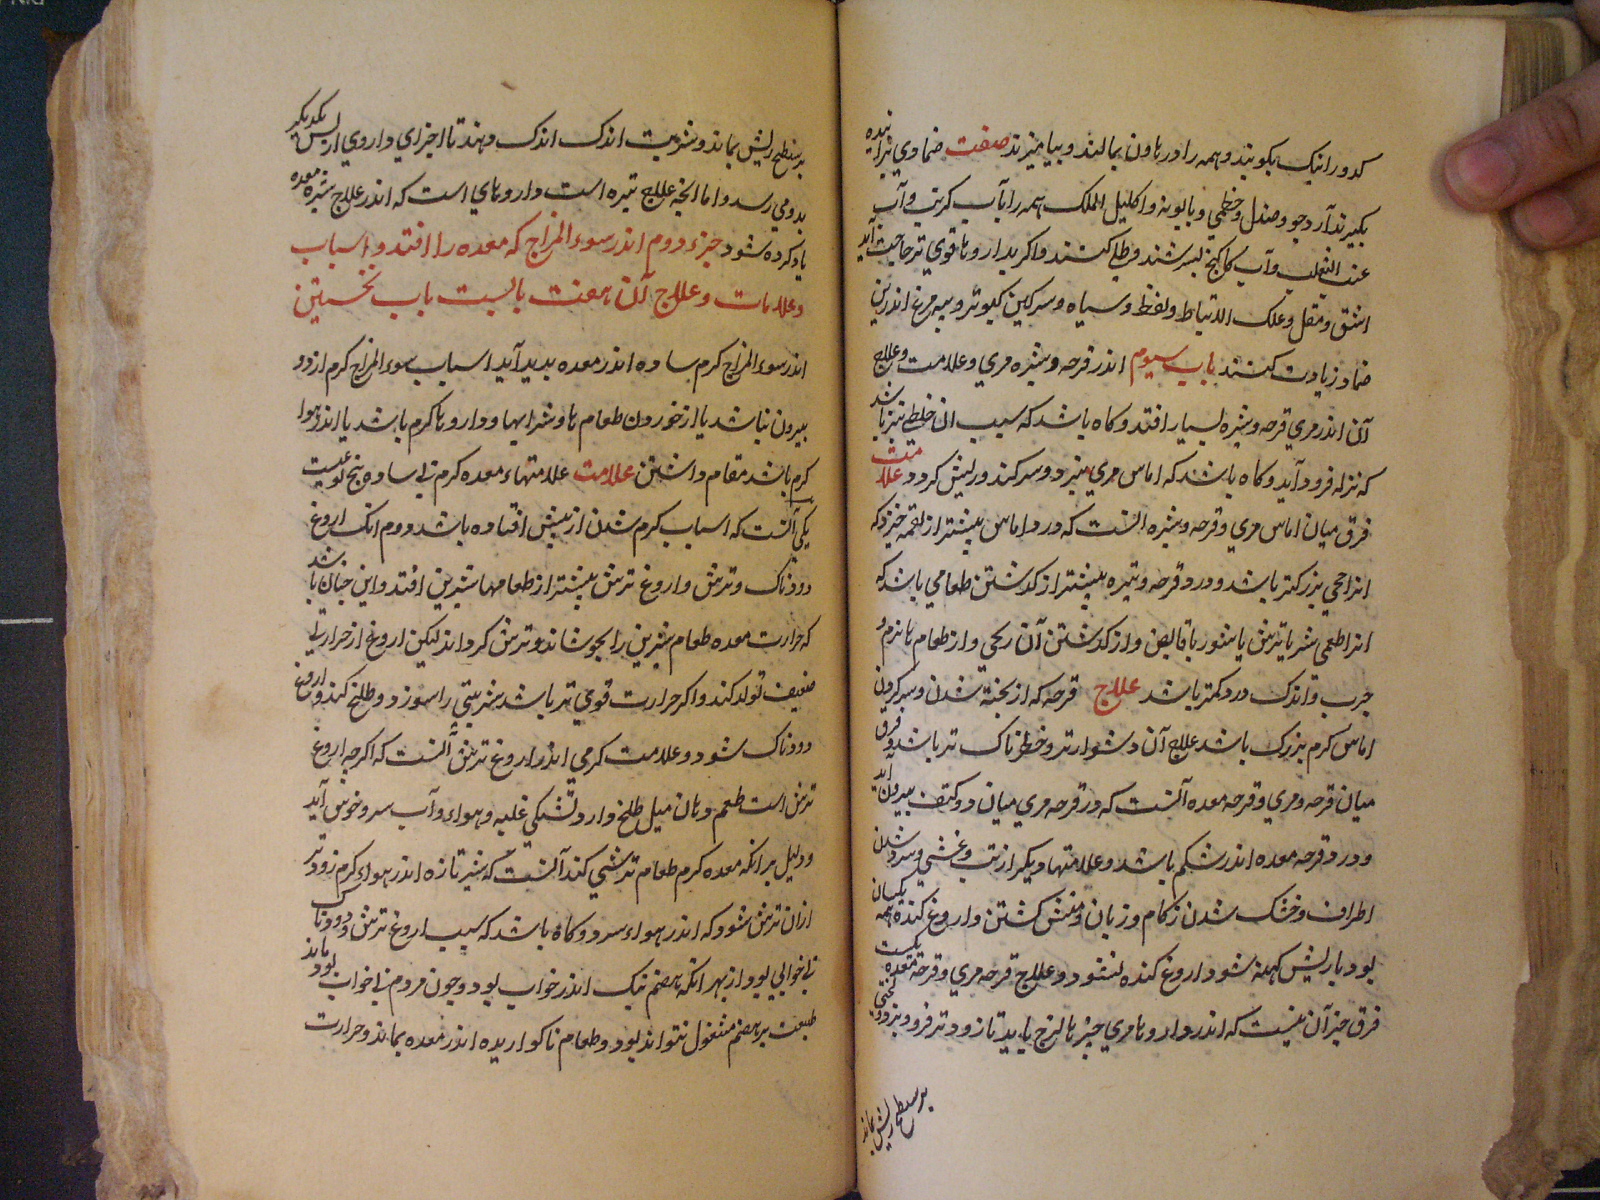 کدو را نیک بکوبند و همه را در هاون بمالند و بیامیزند صفت ضمادی نرانیده
بکیرند آرد جو و صندل و خطمی و بابونه و اکلیل الملک همه را بآب کرنب و آب
عنب الثعلب و آب کاکنج بسرشند و طلا کنند و اکر بدارو ها قوی تر حاجت آید
اشق و مقل و علک و سیاه و سرکین کبوتر و پیه مرغ اندرین
ضماد زیادت کنند باب سیوم اندر قرحه و بثره مری و علامت و علاج
آن اندر مری قرحه و بثره بسیار افتد و کاه باشد که سبب ان خلطی تیز باشد
که نزله فرود آید و کاه باشد که اماس مری بپزد و سر کند و ریش کردد علامت
فرق میان اماس مری و قرحه و بثره انست که درد اماس بیشتر از لقمه خیزد که
بزرکتر باشد و درد قرحه و بثره بیشتر از کذشتن طعامی باشد که
انرا طعمی تیز یا ترش یا شور یا قابض و از کذشتن آن و از طعام ها نرم و
چرب و اندک درد کمتر باشد علاج قرحه که از پخته شدن و سر کردن
اماس کرم بزرک باشد علاج آن دشوارتر و خطرناک تر باشد و فرق
میان قرحه و مری و قرحه معده آنست که درد قرحه مری میان دو کتف بیرون آید
و درد قرحه معده اندر شکم باشد و علامتها دیکر از تب و غشی و سرد شدن
اطراف و خشک شدن زکام و زبان و منش کشتن و اروغ کنده همه یکسان
بود با ریش کهنه شود اروغ کنده نشود و علاج قرحه مری و قرحه معده یکیست
فرق جز آن نیست که اندر دارو ها مری چیز ها لزج باید تا زودتر فرو نرود و لختی
بر سطح ریش بماند
بر سطح ریش بماند و شربت اندک اندک دهند تا اجزای داروی از پس یکدیکر
بدو می رسد و اما انچه علاج بثره است داروهای است که اندر علاج بثره معده
یاد کرده شود جزء دوم اندر سوء المزاج که معده را افتد و اسباب
و علامات و علاج آن هفت بابست باب نخستین
اندر سوء المزاج کرم ساده اندر معده بدید آید اسباب سوء المزاج کرم از دو
بیرون نباشد یا از خوردن طعام ها و شرابها و دارو ها کرم باشد یا اندر هوا
کرم باشد مقام داشتن علامت علامتهاء معده کرم بی ساده پنج نوعیست
یکی آنست که اسباب کرم شدن از پیش افتاده باشد دوم انک اروغ
دودناک و ترش و اروغ ترش بیشتر از طعامها شیرین افتد و این چنان باشد
که حرارت معده طعام شیرین را بجوشاند و ترش کرداند لیکن اروغ از حرارتی
ضعیف تولد کند و اکر حرارت قوی تر باشد شیرینی را سوزد و طلخ کند و اروغ
دودناک شود و علامت کرمی اندر اروغ ترش آنست که اکرچه اروغ
ترش است طعم دهان میل طلخ دارد و تشنکی غلبه و هواء و آب سرد خوش آید
و دلیل بر انکه معده کرم طعام ترشی کند آنست که شیر تازه اندر هواء کرم زودتر
ازان ترش شود که اندر هواء سرد و کاه باشد که سبب اروغ ترش و دودناک
بی خوابی بود از بهر انکه هضم نیک اندر خواب بود و چون مردم بی خواب بود بماند
طبیعت بر هضم مشغول نتواند بود و طعام ناکواریده اندر معده بماند و حرارت